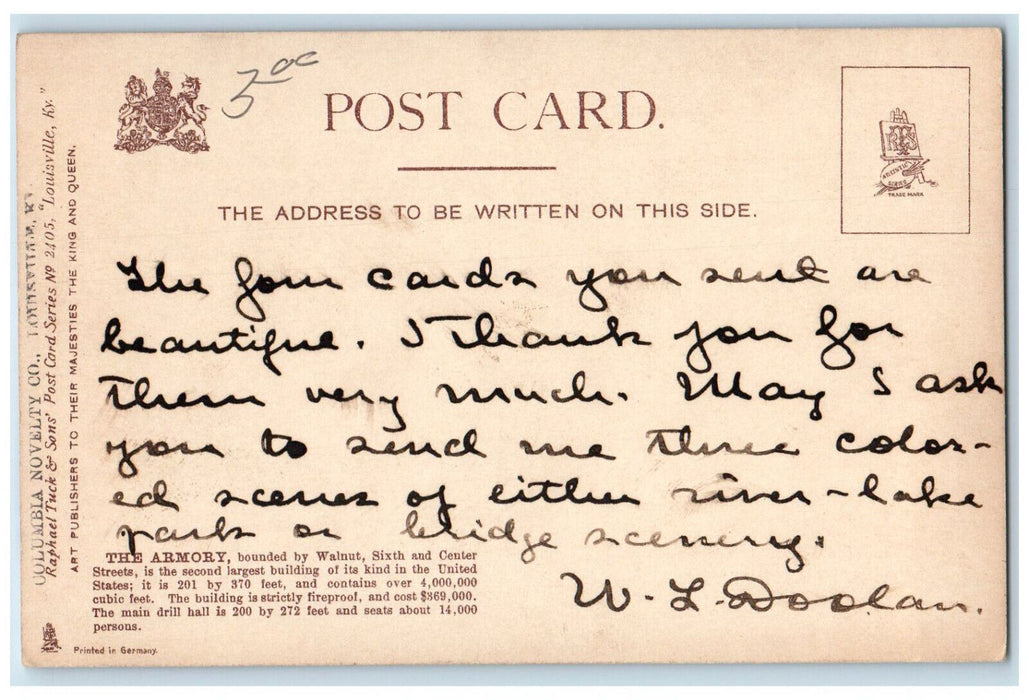 3.00
POST CARD.
THE ADDRESS TO BE WRITTEN ON THIS SIDE.
RTS
ARTISTIC
SERIES
TRADE MARK
COLUMBIA NOVELTY CO., LOUISVILLE, KY.
Raphael Tuck & Sons' Post Card Series No 2405, "Louisville, Ky."
ART PUBLISHERS TO THEIR MAJESTIES THE KING AND QUEEN.
The four cards you sent are
beautiful. I thank you for
them very much. May I ask
you to send me three color-
ed scenes of either river-lake
park or bridge scenery.
W. L. Doolan.
THE ARMORY, bounded by Walnut, Sixth and Center
Streets, is the second largest building of its kind in the United
States; it is 201 by 370 feet, and contains over 4,000,000
cubic feet. The building is strictly fireproof, and cost $369,000.
The main drill hall is 200 by 272 feet and seats about 14,000
persons.
Printed in Germany.